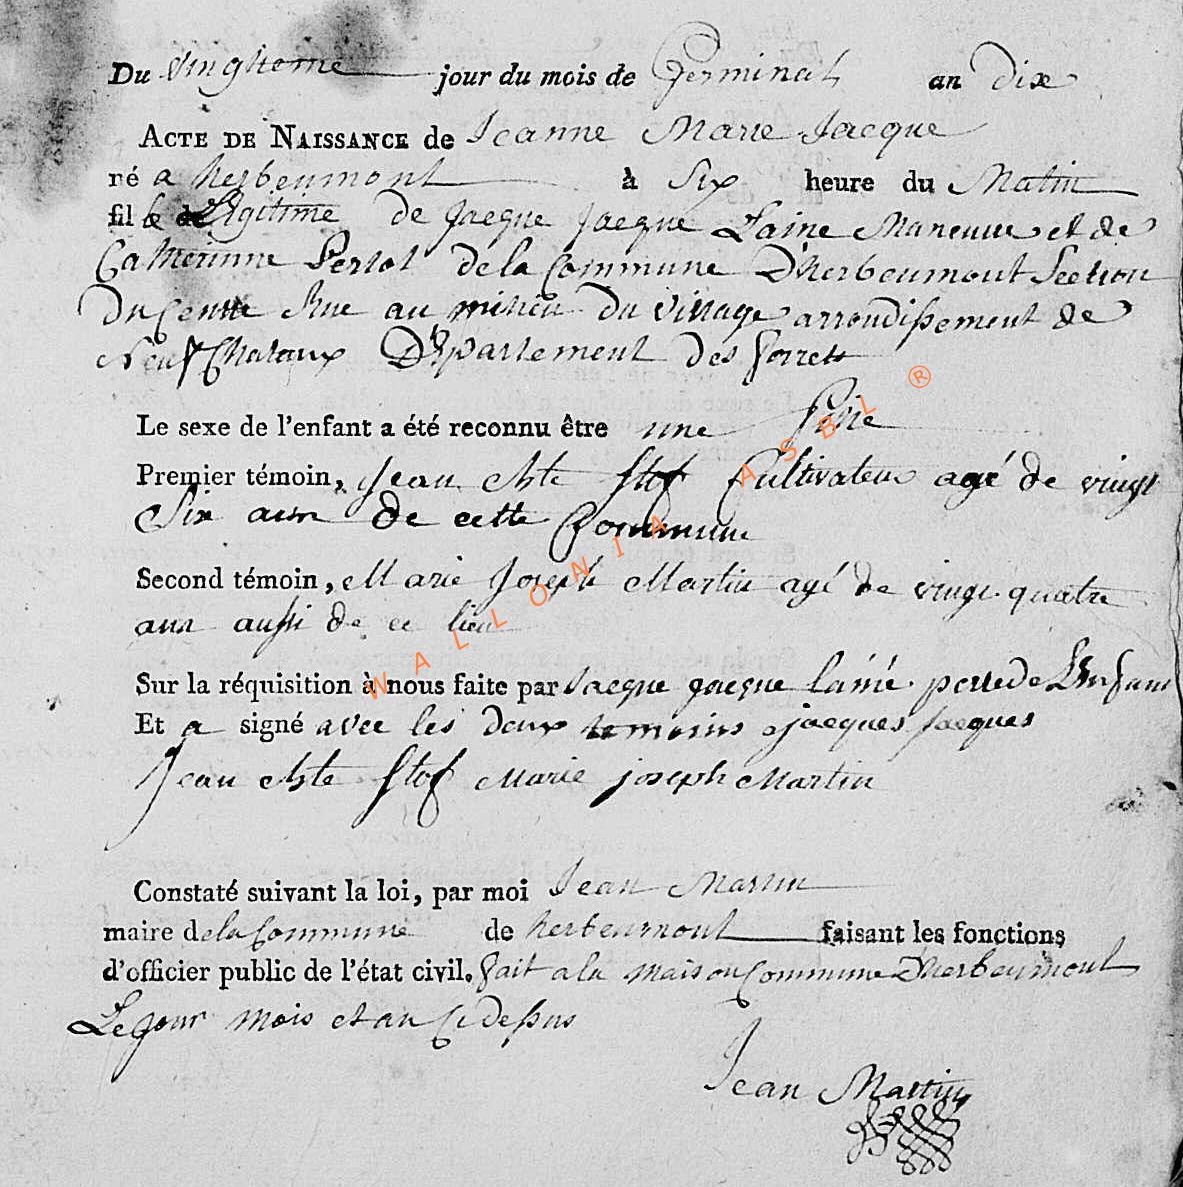 Du vingtieme jour du mois de Germinal an dix
ACTE DE NAISSANCE de Jeanne Marie Jacque
né a herbeumont à Six heure du Matin
fil le de Legitime de Jacque Jacque Laine Maneuve et de
Catherinne Perlot de la Commune D'herbeumont Section
Du Centre Rue au milieu Du village arrondissement de
Neufchataux Département Des forrets
Le sexe de l'enfant a été reconnu être une fille
Premier témoin, Jean Bte Stof Cultivateur agé de vingt
Six ans de cette Commune
Second témoin, Marie Joseph Martin agé de vingt quatre
ans aussi de ce lieu
Sur la réquisition à nous faite par Jacque Jacque lainé perre de L'enfant
Et a signé avec les deux temoins jacques jacques
Jean Bte Stof Marie joseph Martin
Constaté suivant la loi, par moi Jean Martin
maire de la Commune de herbeumont faisant les fonctions
d'officier public de l'état civil. fait a la maison Commune D'herbeumont
Le jour mois et an Ci dessus
Jean Martin
WALLONIA ASBL ®